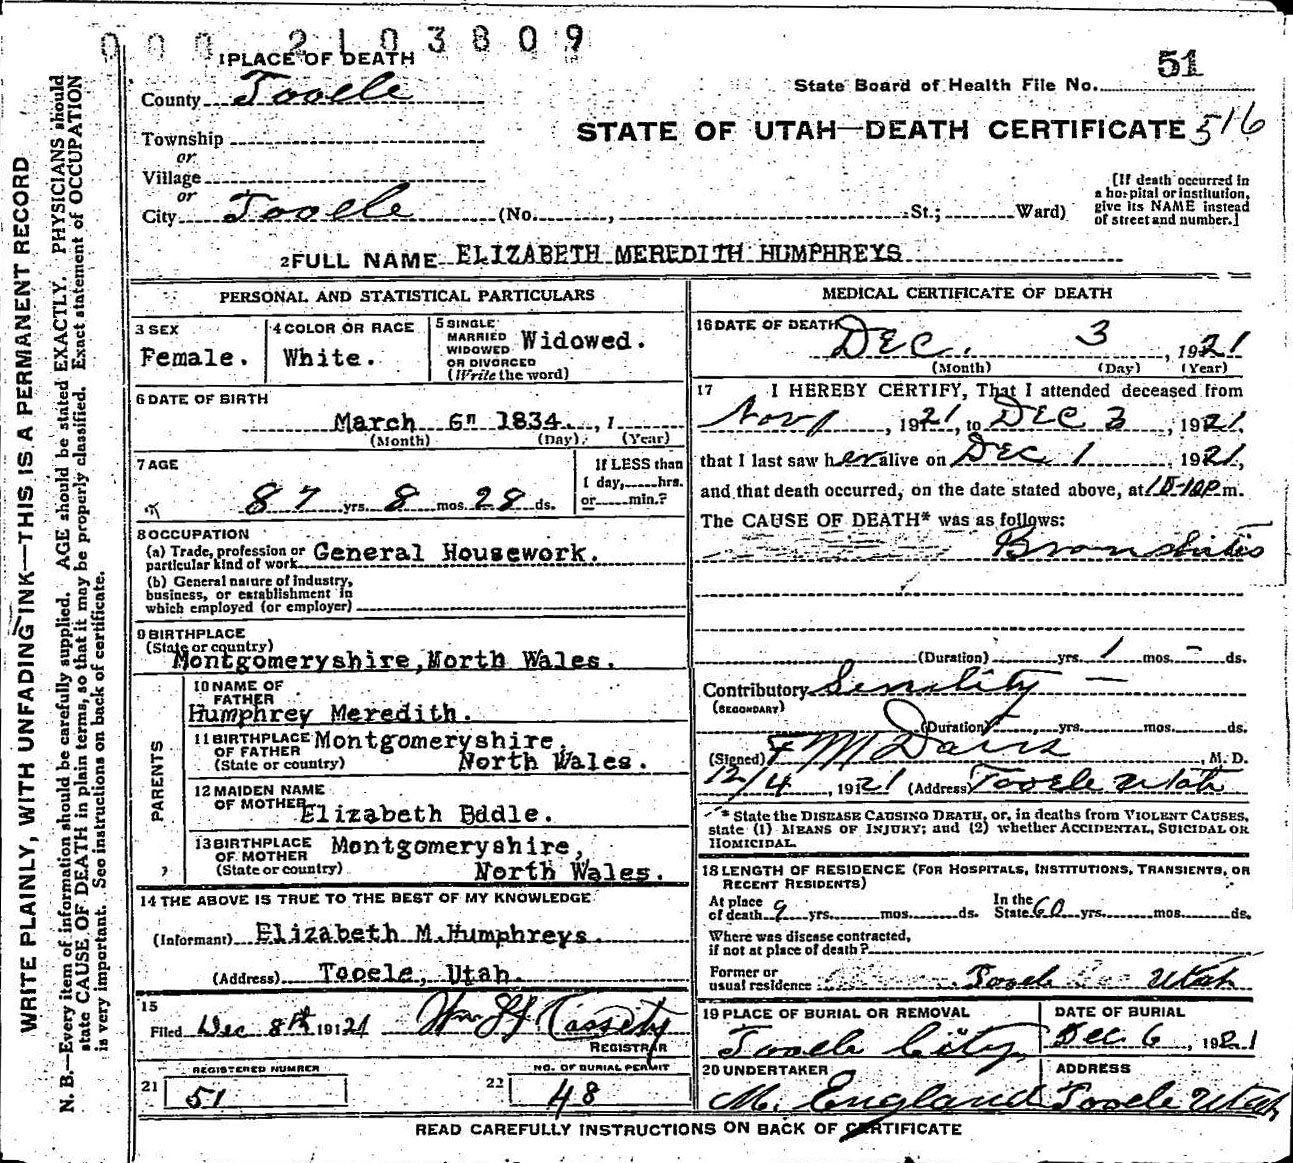 0 0 0 2 1 0 3 8 0 9
1 PLACE OF DEATH
51
State Board of Health File No.
County Tooele
STATE OF UTAH—DEATH CERTIFICATE 516
Township
or
Village
or
City Tooele (No. , St.; Ward)
[If death occurred in
a hospital or institution,
give its NAME instead
of street and number.]
2 FULL NAME ELIZABETH MEREDITH HUMPHREYS
PERSONAL AND STATISTICAL PARTICULARS
3 SEX
Female.
4 COLOR OR RACE
White.
5 SINGLE
MARRIED
WIDOWED
OR DIVORCED
(Write the word)
Widowed.
6 DATE OF BIRTH
March 6" 1834. , 1
(Month) (Day) (Year)
7 AGE
87 yrs. 8 mos. 28 ds.
If LESS than
1 day, hrs.
or min.?
8 OCCUPATION
(a) Trade, profession or
particular kind of work General Housework.
(b) General nature of industry,
business, or establishment in
which employed (or employer)
9 BIRTHPLACE
(State or country)
Montgomeryshire, North Wales.
PARENTS
10 NAME OF
FATHER
Humphrey Meredith.
11 BIRTHPLACE
OF FATHER
(State or country)
Montgomeryshire,
North Wales.
12 MAIDEN NAME
OF MOTHER
Elizabeth Bddle.
13 BIRTHPLACE
OF MOTHER
(State or country)
Montgomeryshire,
North Wales.
14 THE ABOVE IS TRUE TO THE BEST OF MY KNOWLEDGE
(Informant) Elizabeth M. Humphreys.
(Address) Tooele, Utah.
15
Filed Dec 8th 1921 Cassety
REGISTRAR
21
REGISTERED NUMBER
51
22
NO. OF BURIAL PERMIT
48
MEDICAL CERTIFICATE OF DEATH
16 DATE OF DEATH
Dec. 3 , 1921
(Month) (Day) (Year)
17 I HEREBY CERTIFY, That I attended deceased from
Nov 1 , 1921, to Dec 3 , 1921,
that I last saw her alive on Dec 1 , 1921,
and that death occurred, on the date stated above, at 10-10 P m.
The CAUSE OF DEATH* was as follows:
Bronshitis
(Duration) yrs. 1 mos. – ds.
Contributory Senility —
(SECONDARY)
(Duration) yrs. mos. ds.
(Signed) F M Davis , M. D.
12/4 , 1921 (Address) Tooele Utah
* State the DISEASE CAUSING DEATH, or, in deaths from VIOLENT CAUSES,
state (1) MEANS OF INJURY; and (2) whether ACCIDENTAL, SUICIDAL OR
HOMICIDAL.
18 LENGTH OF RESIDENCE (FOR HOSPITALS, INSTITUTIONS, TRANSIENTS, OR
RECENT RESIDENTS)
At place
of death 9 yrs. mos. ds.
In the
State 60 yrs. mos. ds.
Where was disease contracted,
if not at place of death?
Former or
usual residence Tooele Utah
19 PLACE OF BURIAL OR REMOVAL
Tooele City,
DATE OF BURIAL
Dec 6 , 1921
20 UNDERTAKER
M. England
ADDRESS
Tooele Utah
READ CAREFULLY INSTRUCTIONS ON BACK OF CERTIFICATE
WRITE PLAINLY, WITH UNFADING INK—THIS IS A PERMANENT RECORD
N. B.—Every item of information should be carefully supplied. AGE should be stated EXACTLY. PHYSICIANS should
state CAUSE OF DEATH in plain terms, so that it may be properly classified. Exact statement of OCCUPATION
is very important. See instructions on back of certificate.